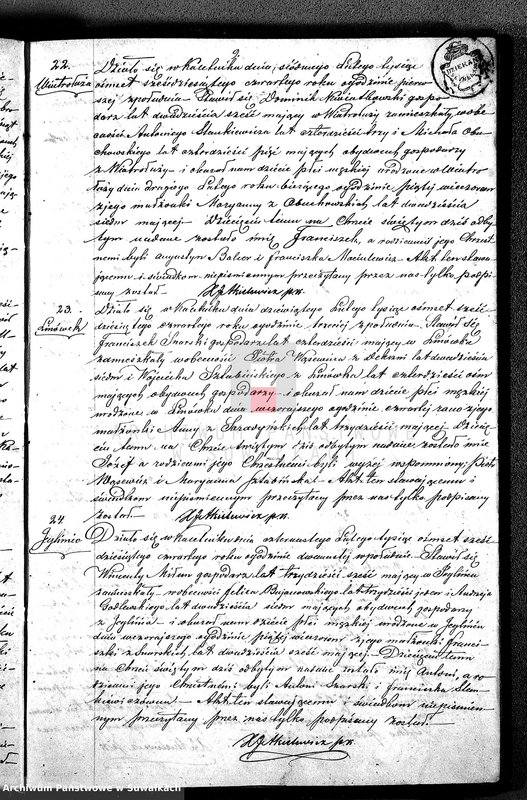 22.
Wiatrołuża
Działo się w Kaletniku dnia siódmego Lutego tysiąc
ośmset sześćdziesiątego czwartego roku o godzinie pierw-
szej z południa. Stawił się Dominik Kwiatkowski gospo-
darz lat dwadzieścia sześć mający w Wiatrołuży zamieszkały w obe-
cności Antoniego Stankiewicza lat czterdzieści trzy i Michała Obu-
chowskiego lat czterdzieści pięć mających obydwóch gospodarzy
z Wiatrołuży i okazał nam dziecię płci męzkiej urodzone w Wiatro-
łuży dnia drugiego Lutego roku bieżącego o godzinie piątej wieczorem
z jego małżonki Maryanny z Obuchowskich lat dwadzieścia
siedm mającej. Dziecięciu temu na Chrzcie świętym dziś odby-
tym nadane zostało imię Franciszek, a rodzicami jego Chrzest-
nemi byli Augustyn Balcer i Franciszka Maciulewicz. Akt ten stawa-
jącemu i świadkom niepismiennym przeczytany przez nas tylko podpi-
sany został.
23.
Linówek
Działo się w Kaletniku dnia dziewiątego Lutego tysiąc ośmset sześć-
dziesiątego czwartego roku o godzinie trzeciej z południa. Stawił się
Franciszek gospodarz lat czterdzieści mający w Linówku
zamieszkały w obecności Piotra lat dwadzieścia
siedm i Wojciecha z Linówka lat czterdzieści ośm
mających obydwóch gospodarzy i okazał nam dziecię płci męzkiej
urodzone w Linówku dnia wczorajszego o godzinie czwartej rano z jego
małżonki Anny z lat trzydzieści mającej. Dziecię-
ciu temu na Chrzcie świętym dziś odbytym nadane zostało imię
Józef a rodzicami jego Chrzestnemi byli wyżej wspomniony Piotr
i Maryanna. Akt ten stawającemu i
świadkom niepismiennym przeczytany przez nas tylko podpisany
został.
24.
Jegliniec
Działo się w Kaletniku dnia czternastego Lutego tysiąc ośmset sześć-
dziesiątego czwartego roku o godzinie dwunastej w południe. Stawił się
Wincenty gospodarz lat trzydzieści sześć mający w
zamieszkały w obecności Felixa Bujanowskiego lat trzydzieści jeden i Andrzeja
Godlewskiego lat dwadzieścia siedm mających obydwóch gospodarzy
z i okazał nam dziecię płci męzkiej urodzone w
dnia wczorajszego o godzinie piątej wieczorem z jego małżonki Franci-
szki z lat dwadzieścia sześć mającej. Dziecięciu temu
na Chrzcie świętym dziś odbytym nadane zostało imię Antoni, a ro-
dzicami jego Chrzestnemi byli Antoni i Franciszka Stan-
kiewiczówna. Akt ten stawającemu i świadkom niepismien-
nym przeczytany przez nas tylko podpisany został.
Archiwum Państwowe w Suwałkach